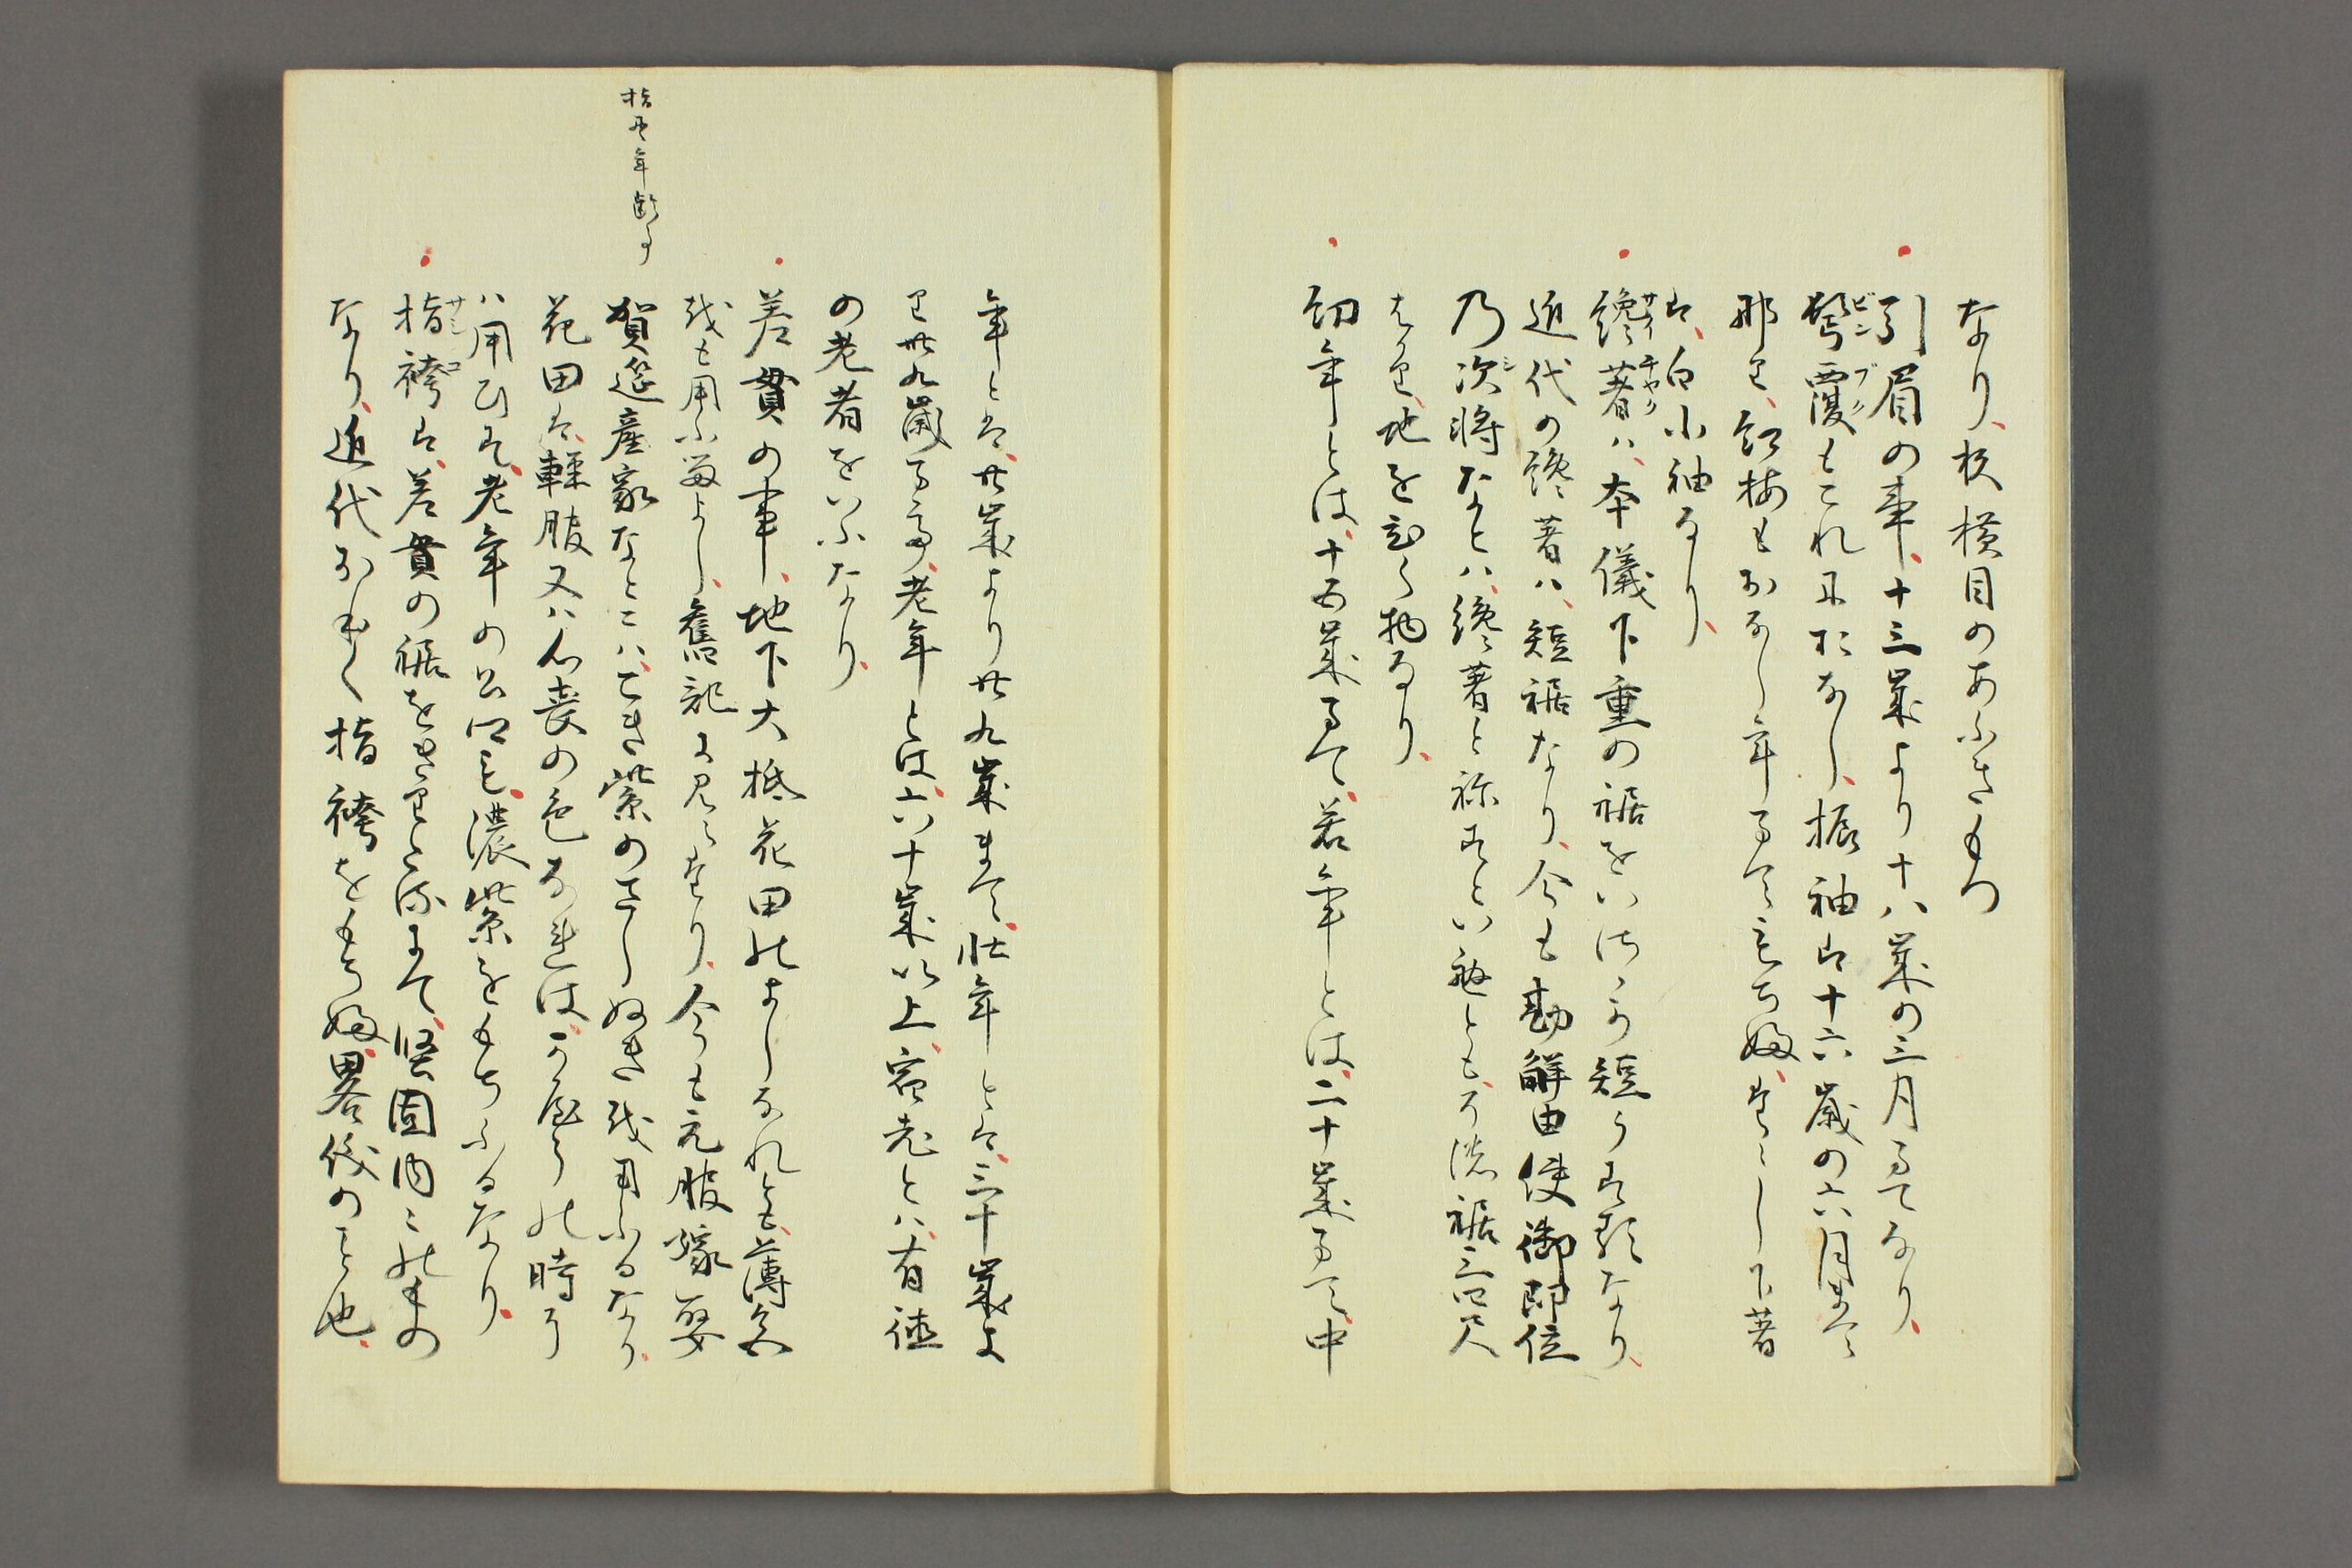 なり、杉横目のあふきもつ
引眉の事、十三歳より十八歳の三月まてなり、
鬢覆もこれにおなし、振袖は十六歳の六月まて
那り、紅梅もおなし年まてもち婦、たゝし下著
は、白小袖なり、
纔著ハ、本儀下重の裾をいさゝか短うす類なり、
近代の纔著ハ、短裾なり、今も勘解由使御即位
乃次将なとハ、纔著と称すといへとも、裾三四尺
はかり、地を引く物なり、
幼年とは、十五歳まて、若年とは、二十歳まて、中
年とは、廿歳より廿九歳まて、壮年とは、三十歳よ
り卅九歳まて、老年とは六十歳以上、宿老とハ、有徳
の老者をいふなり、
差貫の事、地下大抵花田のよしなれとも、薄色
越も用ふ留よし、舊記に見えたり、今も元服嫁娶
賀筵産家なとにハ、こき紫のさしぬき越用ふるなり、
花田は、軽服又ハ心喪の色なれは、かやうの時に
ハ用ひす、老年の公卿も、濃紫をもちふるなり、
指袴は、差貫の裾をきりたるにて、堅固内々のもの
なり、近代おもく指袴をもち婦、畧儀のこと也、
指貫年齢事
ビンブク
サイチヤク
シ
サシコ